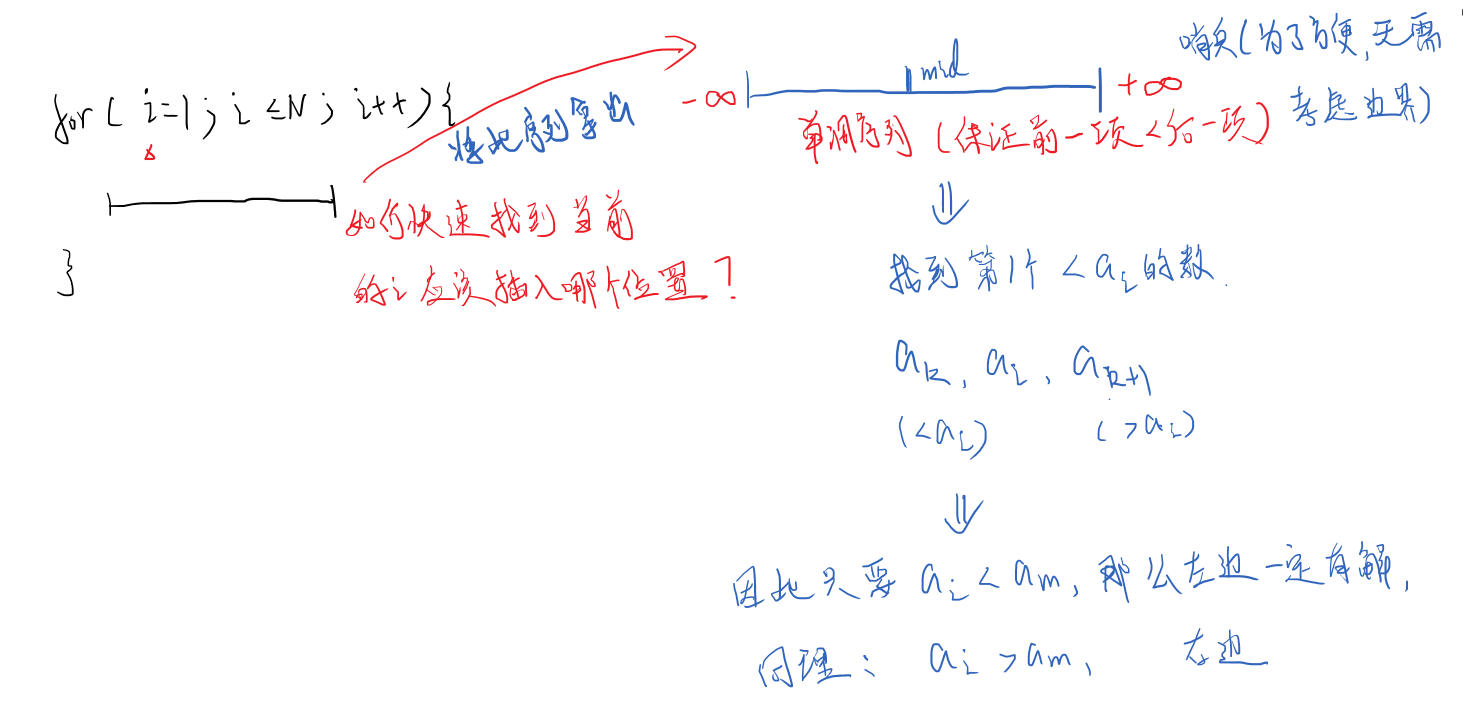 for( i=1; i≤N; i++){
}
将此序列拿出
如何快速找到当前
的i应该插入哪个位置?
哨兵(为了方便,无需
考虑边界)
-∞ mid +∞
单调序列(保证前一项<后一项)
⇓
找到第1个<ai的数.
ak, ai, ak+1
(<ai) (>ai)
⇓
因此只要ai<am,那么左边一定有解,
同理: ai>am, 右边